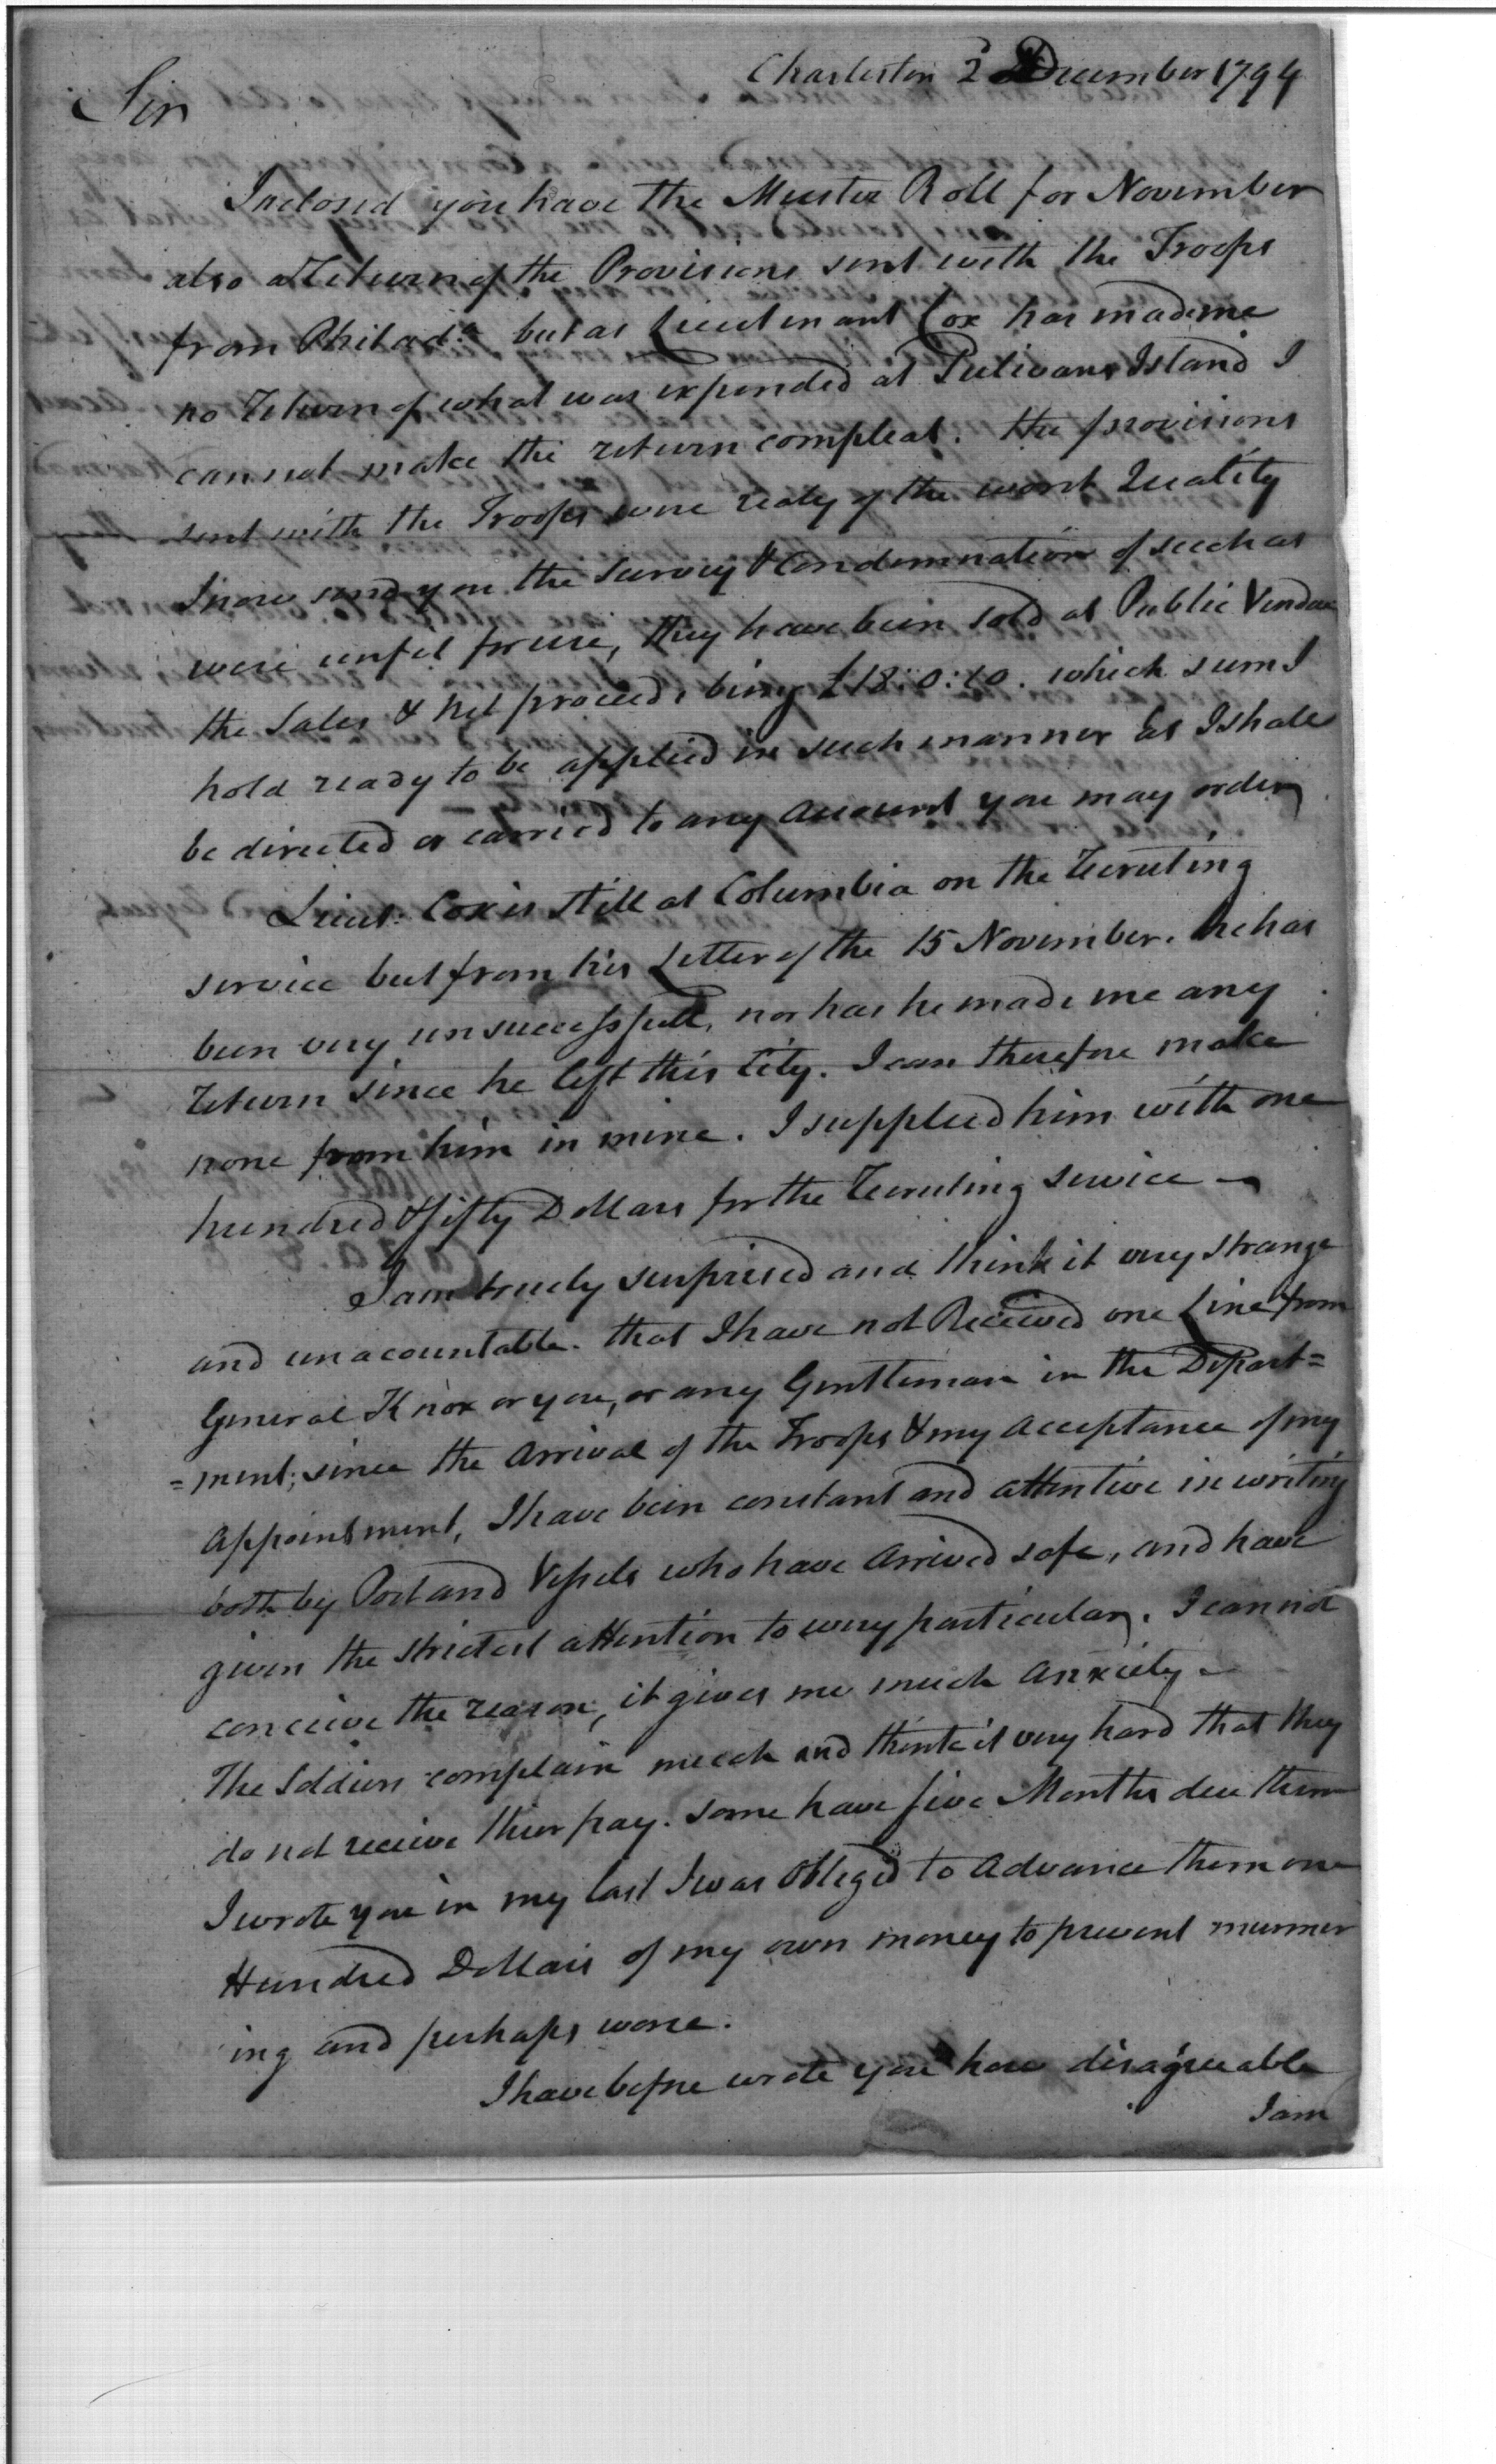 Charleston 2 December 1794
Sir
Inclosed you have the Muster Roll for November
also a Return of the Provisions sent with the Troops
from Philad.a but as Lieutenant Cox has made me
no Return of what was expended at Sulivans Island I
cannot make the return compleat. the provisions
sent with the Troops were realy of the worst Quality
I now send you the Survey & Condemnation of such as
were unfit for use, they have been sold at Public Vendue
the Sales & net proceeds being £18:0:10. which sum I
hold ready to be applied in such manner as I shall
be directed or carried to any Account you may order,
Lieut: Cox is still at Columbia on the Recruting
service but from his Letter of the 15 November. he has
been very unsuccessfull, nor has he made me any
Return since he left this City. I can therefore make
none from him in mine. I supplied him with one
hundred & fifty Dollars for the Recruting service —
I am truely surprised and think it very strange
and unacountable. that I have not Received one Line from
General Knox or you, or any Gentleman in the Depart=
=ment; since the Arrival of the Troops & my Acceptance of my
Appointment, I have been constant and attentive in writing
both by Post and Vessels who have Arrived safe, and have
given the strictest attention to every particular. I cannot
conceive the reason, it gives me much Anxiety —
The Soldiers complain much and think it very hard that they
do not receive thier pay. some have five Months due them
I wrote you in my last I was Obleged to Advance them one
Hundred Dollars of my own money to prevent murmer
ing and perhaps worse.
I have before wrote you how disagreeable
I am